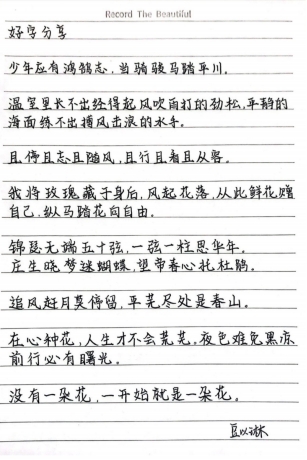 Record The Beautiful
好字分享
少年应有鸿鹄志，当骑骏马踏平川。
温室里长不出经得起风吹雨打的劲松，平静的
海面练不出搏风击浪的水手。
且停且忘且随风，且行且看且从容。
我将玫瑰藏于身后，风起花落，从此鲜花赠
自己，纵马踏花向自由。
锦瑟无端五十弦，一弦一柱思华年。
庄生晓梦迷蝴蝶，望帝春心托杜鹃。
追风赶月莫停留，平芜尽处是春山。
在心种花，人生才不会荒芜。夜色难免黑凉
前行必有曙光。
没有一朵花，一开始就是一朵花。